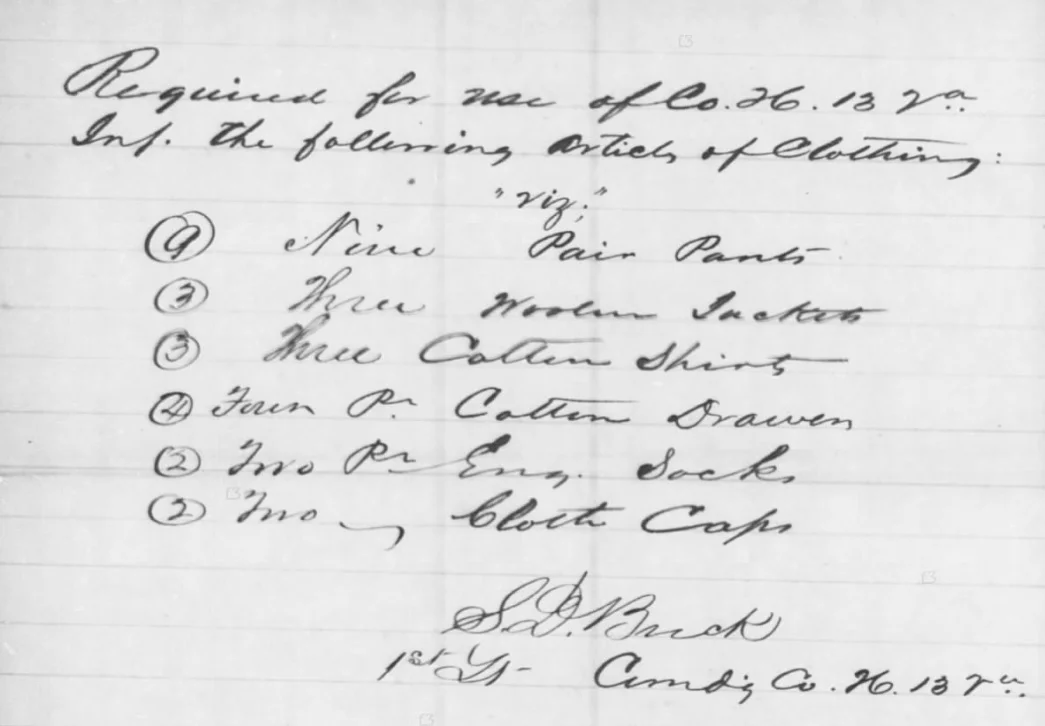 Required for use of Co. H. 13 Va.
Inf. the following articles of Clothing:
"viz;"
(9) Nine Pair Pants
(3) Three Woolen Jackets
(3) Three Cotten Shirts
(4) Four Pr Cotten Drawers
(2) Two Pr Eng. Socks
(2) Two " Cloth Caps
S. D. Buck
1st Lt Comdg Co. H. 13 Va.